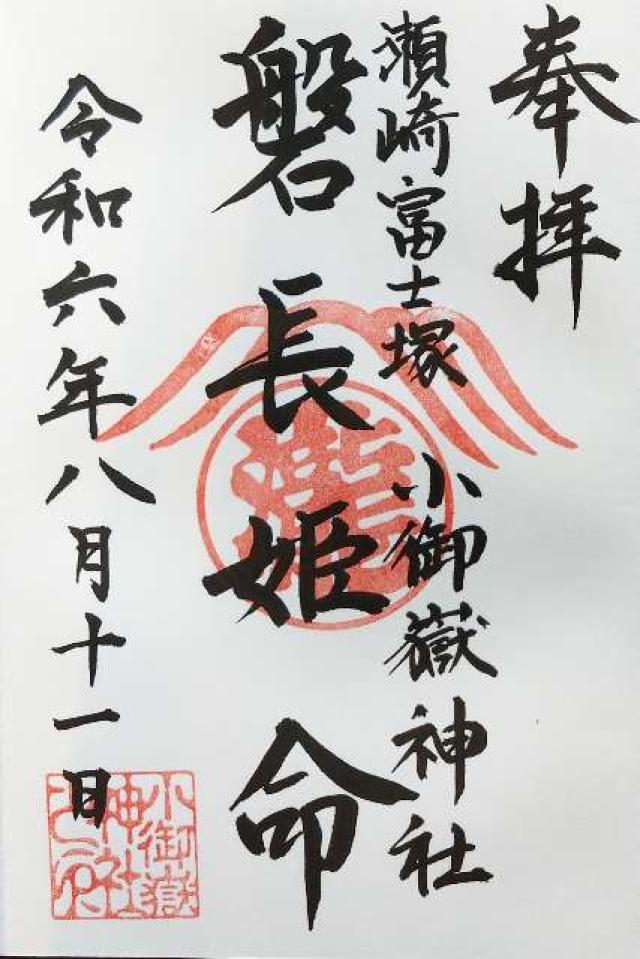 奉拝
瀬崎富士塚 小御嶽神社
磐長姫命
令和六年八月十一日
小御嶽
神社